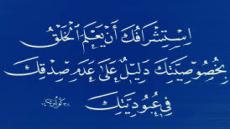 اِسْتِشْرَافُكَ أَنْ يَعْلَمَ الْخَلْقُ
بِخُصُوصِيَّتِكَ دَلِيلٌ عَلَى عَدَمِ صِدْقِكَ
فِي عُبُودِيَّتِكَ